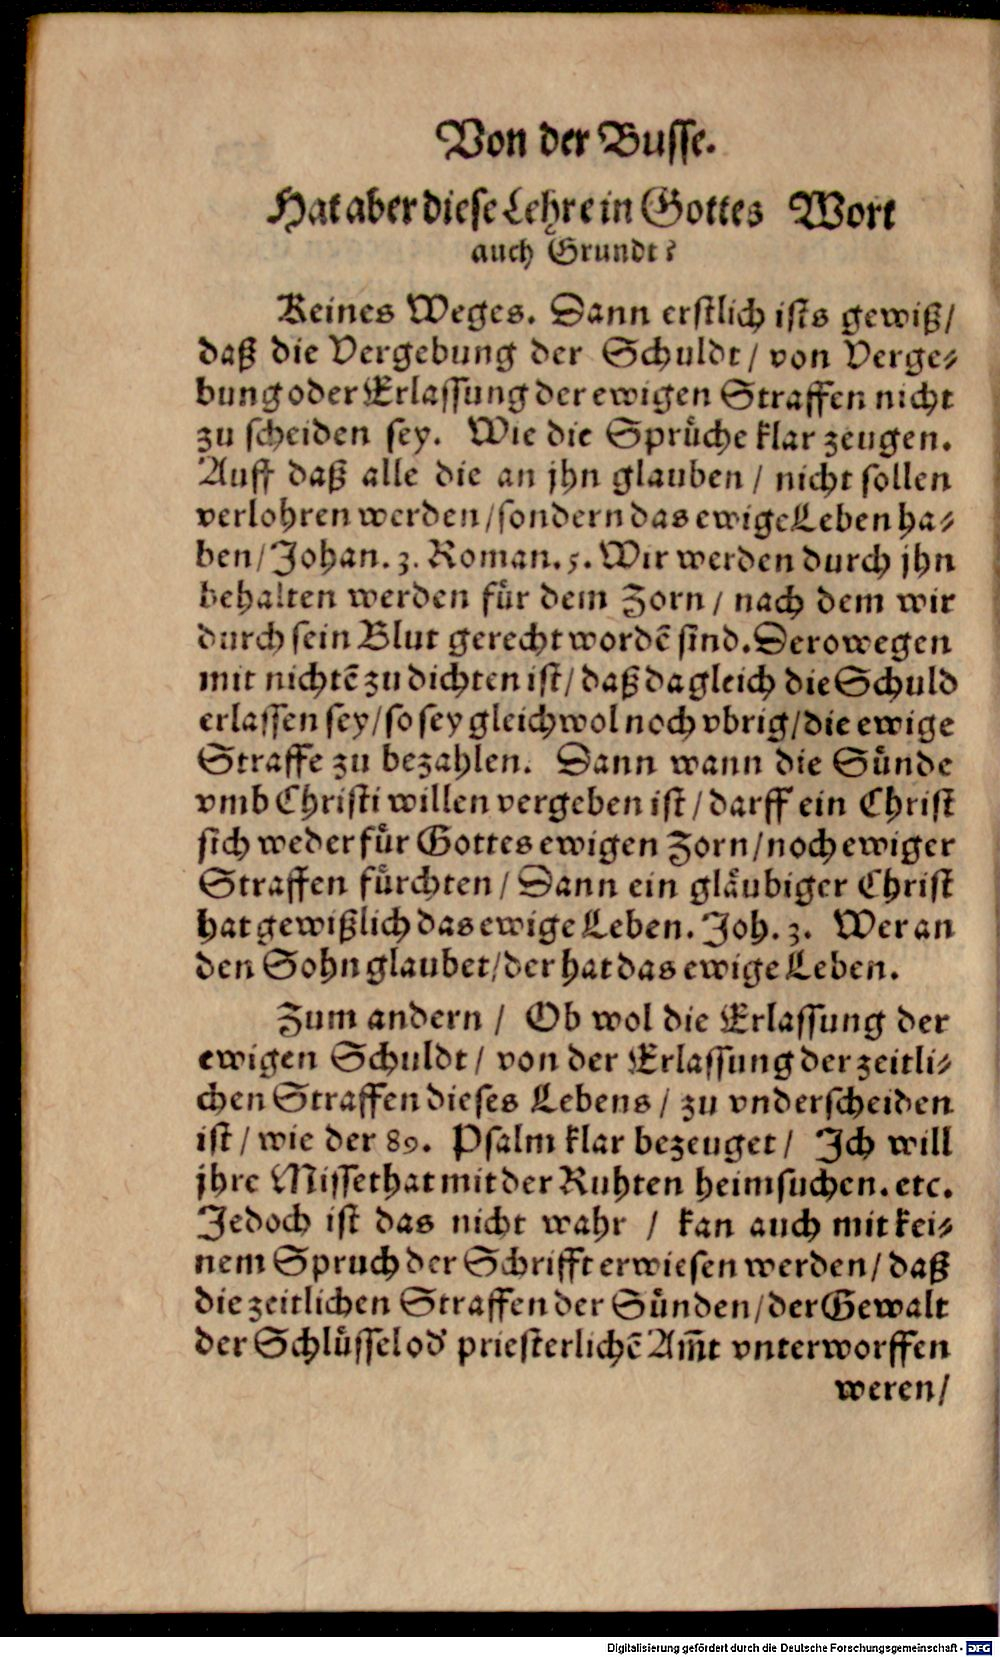 Von der Busse.
Hat aber diese Lehre in Gottes Wort
auch Grundt?
Keines Weges. Dann erstlich ists gewiß/
daß die Vergebung der Schuldt / von Verge-
bung oder Erlassung der ewigen Straffen nicht
zu scheiden sey. Wie die Sprüche klar zeugen.
Auff daß alle die an jhn glauben / nicht sollen
verlohren werden / sondern das ewige Leben ha-
ben / Johan. 3. Roman. 5. Wir werden durch jhn
behalten werden für dem Zorn / nach dem wir
durch sein Blut gerecht wordẽ sind. Derowegen
mit nichtẽ zu dichten ist / daß da gleich die Schuld
erlassen sey / so sey gleichwol noch vbrig / die ewige
Straffe zu bezahlen. Dann wann die Sünde
vmb Christi willen vergeben ist / darff ein Christ
sich weder für Gottes ewigen Zorn / noch ewiger
Straffen fürchten / Dann ein gläubiger Christ
hat gewißlich das ewige Leben. Joh. 3. Wer an
den Sohn glaubet / der hat das ewige Leben.
Zum andern / Ob wol die Erlassung der
ewigen Schuldt / von der Erlassung der zeitli-
chen Straffen dieses Lebens / zu vnderscheiden
ist / wie der 89. Psalm klar bezeuget / Ich will
jhre Missethat mit der Ruhten heimsuchen. etc.
Jedoch ist das nicht wahr / kan auch mit kei-
nem Spruch der Schrifft erwiesen werden / daß
die zeitlichen Straffen der Sünden / der Gewalt
der Schlüssel od' priesterlichẽ Am̃t vnterworffen
weren /
Digitalisierung gefördert durch die Deutsche Forschungsgemeinschaft - DFG